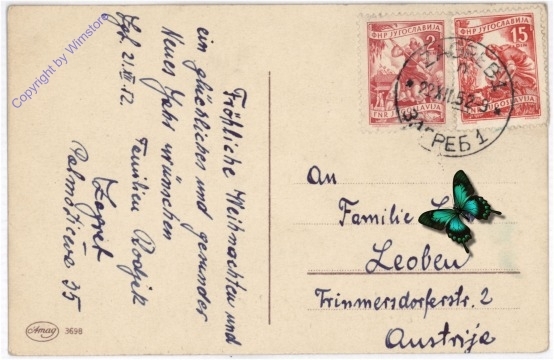 Fröhliche Weihnachten und
ein glückliches und gesundes
Neues Jahr wünschen
Familien Rodjek
Zagreb
Palmotićeva 35
Zgb. 21.XII.52.
An
Familie
Leoben
Trinmersdorferstr. 2
Austrija
ФНР ЈУГОСЛАВИЈА
2
FNR JUGOSLAVIJA
ФНР ЈУГОСЛАВИЈА
15
FNR JUGOSLAVIJA
ZAGREB 1
22.XII.52
ЗАГРЕБ 1
Amag 3698
Copyright by Wimstore